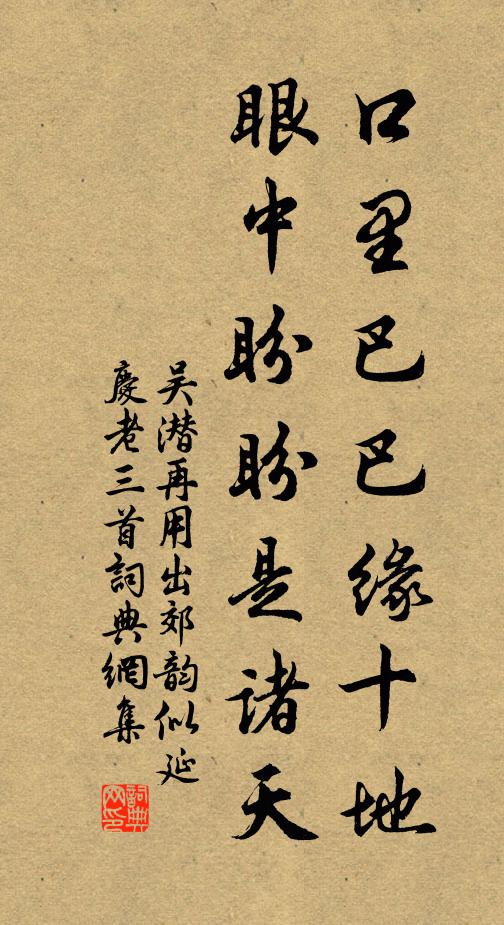 口里巴巴缘十地
眼中盼盼是诸天
吴潜再用出郊韵似延
庆老三首词典网集
词典
网印